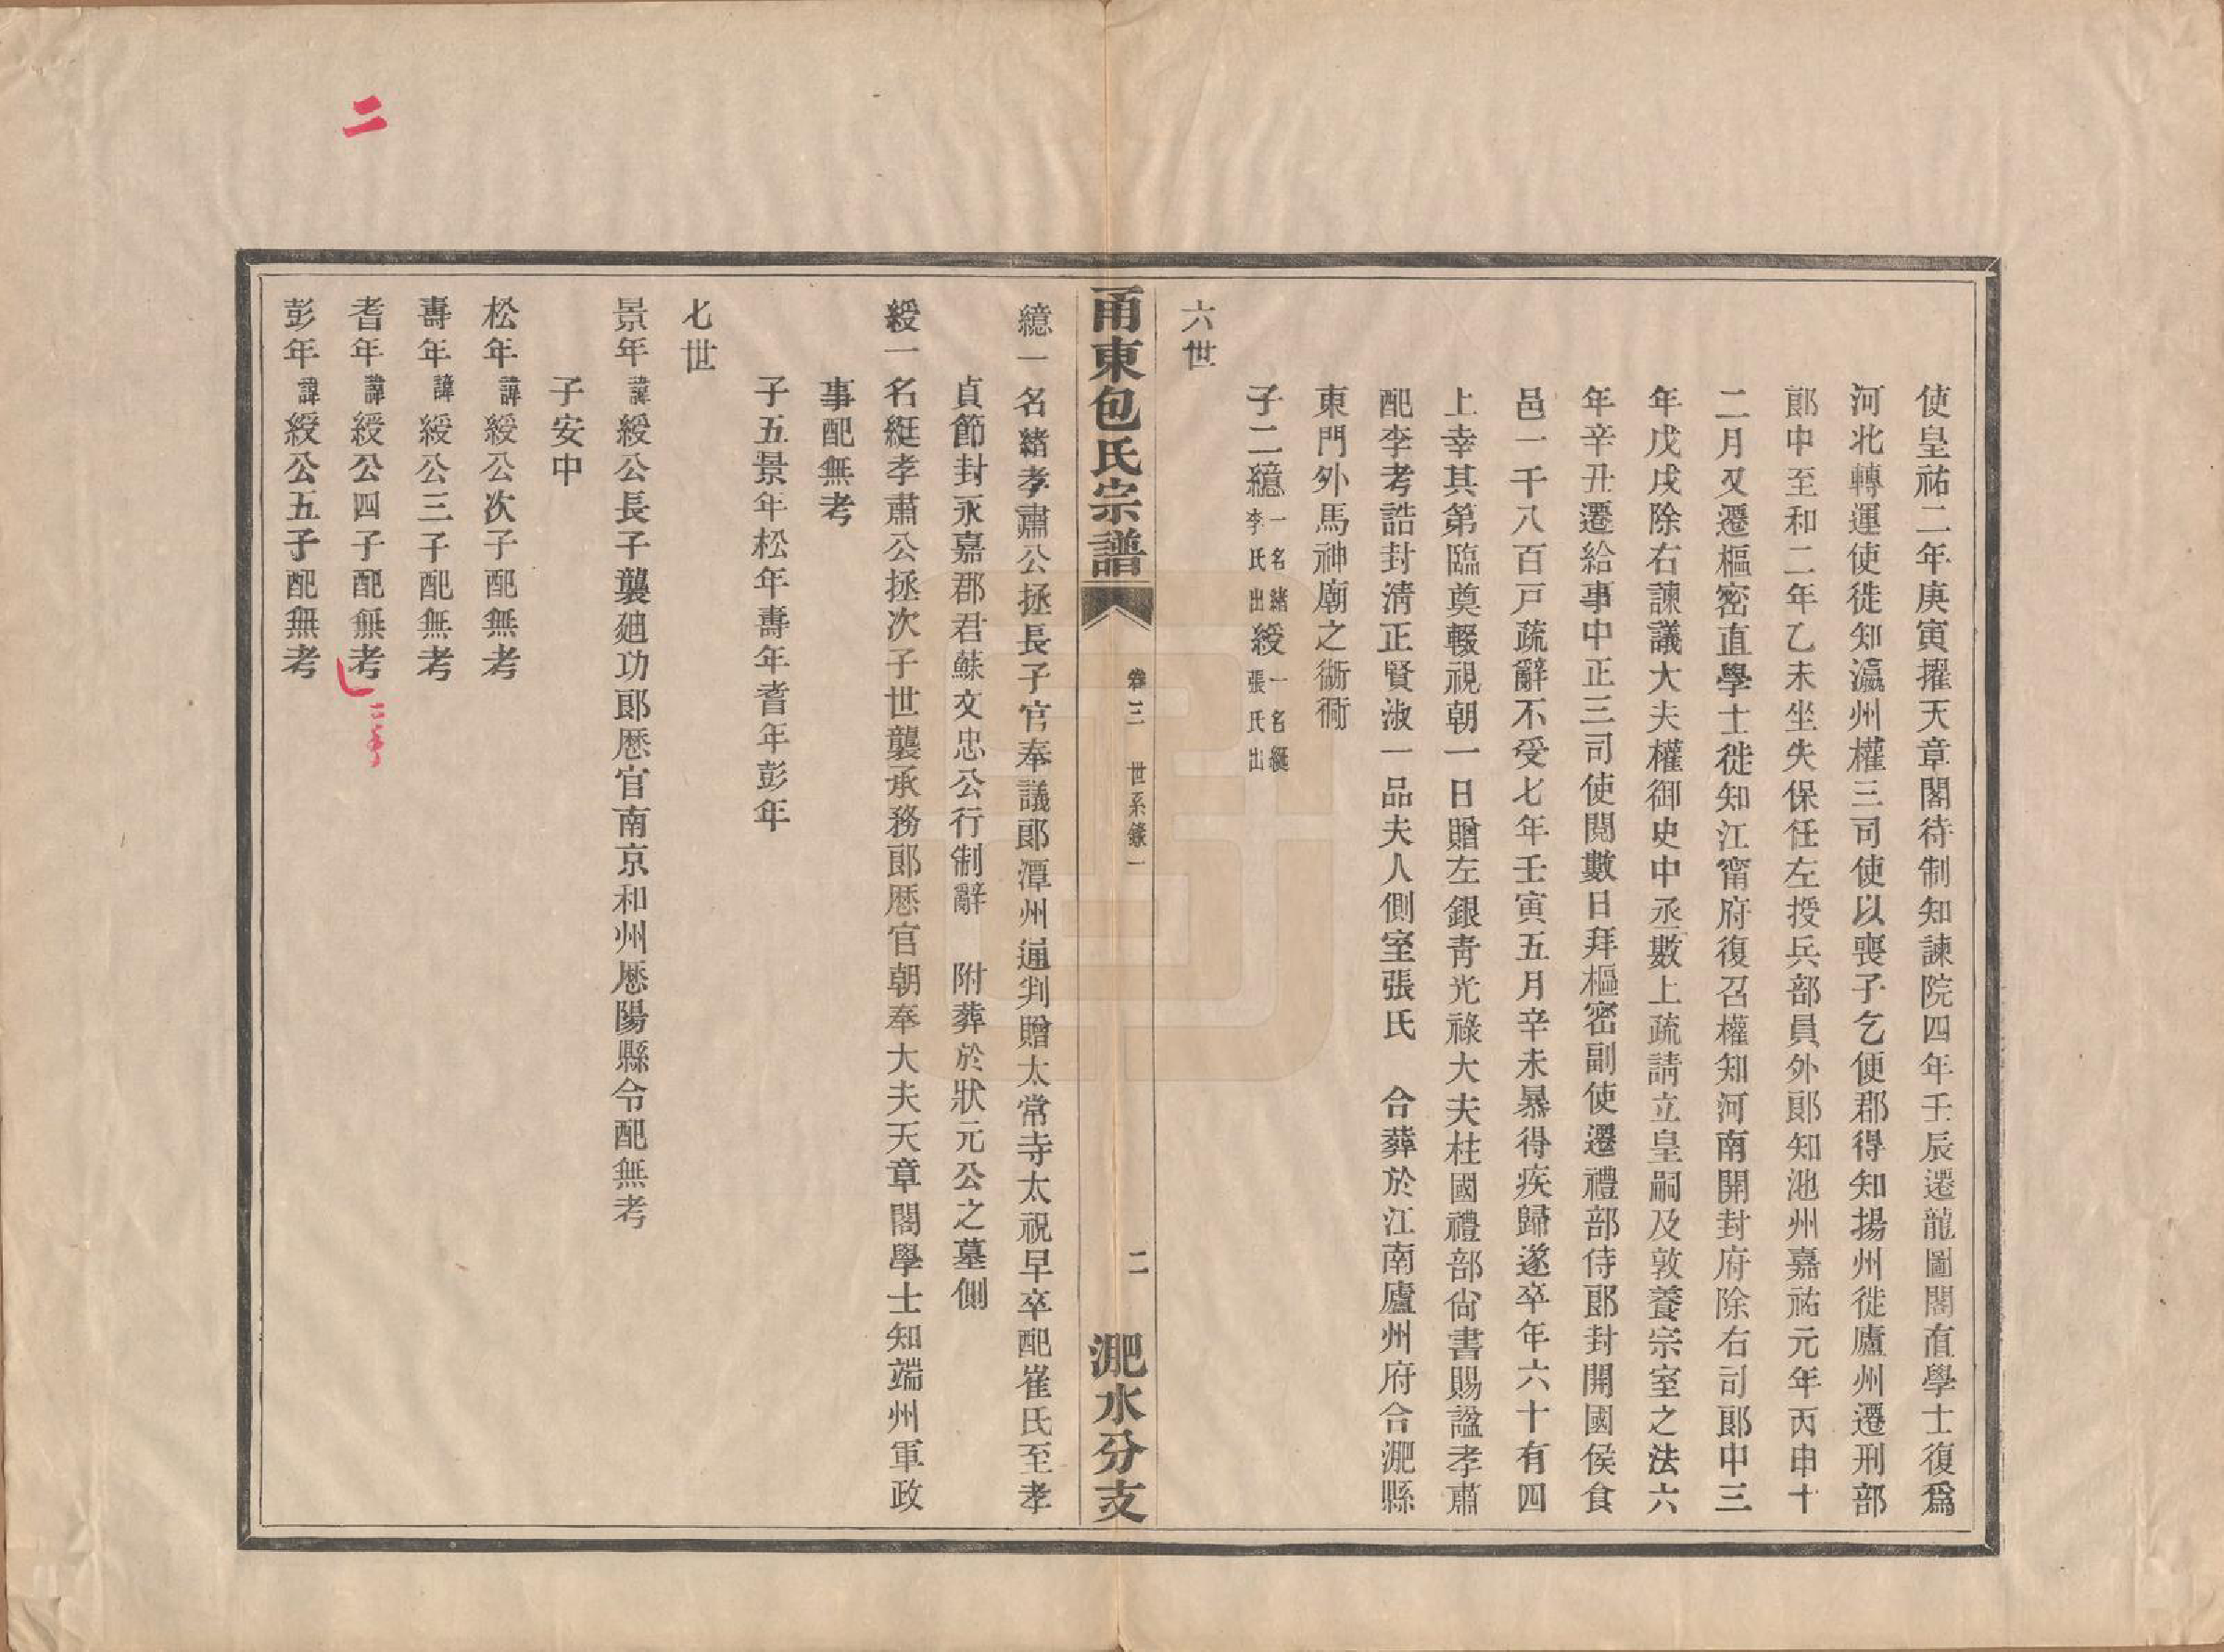 使皇祐二年庚寅擢天章閣待制知諫院四年壬辰遷龍圖閣直學士復爲
河北轉運使徙知瀛州權三司使以喪子乞便郡得知揚州徙廬州遷刑部
郞中至和二年乙未坐失保任左授兵部員外郞知池州嘉祐元年丙申十
二月又遷樞密直學士徙知江甯府復召權知河南開封府除右司郞中三
年戊戌除右諫議大夫權御史中丞數上疏請立皇嗣及敦養宗室之法六
年辛丑遷給事中正三司使閱數日拜樞密副使遷禮部侍郞封開國侯食
邑一千八百戸疏辭不受七年壬寅五月辛未暴得疾歸遂卒年六十有四
上幸其第臨奠輟視朝一日贈左銀靑光祿大夫柱國禮部尙書賜諡孝肅
配李考誥封淸正賢淑一品夫人側室張氏 合葬於江南廬州府合淝縣
東門外馬神廟之衚衕
子二繶一名緖李氏出綬一名綎張氏出
六世
甬東包氏宗譜 卷三 世系錄一 二 淝水分支
繶一名緖孝肅公拯長子官奉議郞潭州通判贈太常寺太祝早卒配崔氏至孝
貞節封永嘉郡君蘇文忠公行制辭 附葬於狀元公之墓側
綬一名綎孝肅公拯次子世襲承務郞歷官朝奉大夫天章閣學士知端州軍政
事配無考
子五景年松年壽年耆年彭年
七世
景年諱綬公長子襲廸功郞歷官南京和州歷陽縣令配無考
子安中
松年諱綬公次子配無考
壽年諱綬公三子配無考
耆年諱綬公四子配無考
彭年諱綬公五子配無考
二